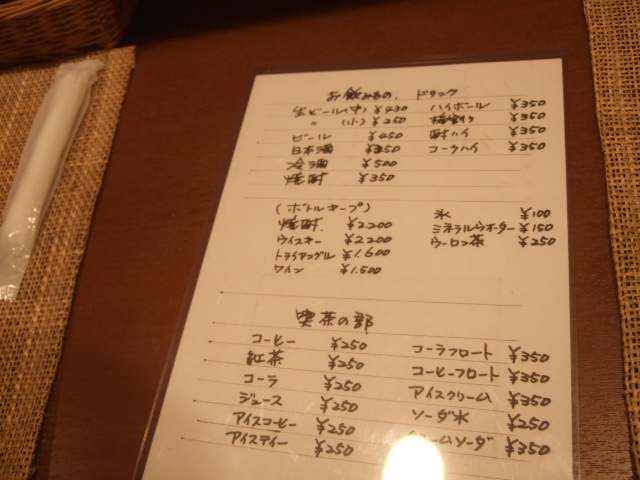 お飲みもの、ドリンク
生ビール(中) ¥430 ハイボール ¥350
〃 (小) ¥250 梅割り ¥350
ビール ¥450 酎ハイ ¥350
日本酒 ¥350 コークハイ ¥350
冷酒 ¥500
焼酎 ¥350
(ボトルキープ) 氷 ¥100
焼酎 ¥2200 ミネラルウオーター ¥150
ウイスキー ¥2200 ウーロン茶 ¥250
トライアングル ¥1.600
ワイン ¥1.500
喫茶の部
コーヒー ¥250 コーラフロート ¥350
紅茶 ¥250 コーヒーフロート ¥350
コーラ ¥250 アイスクリーム ¥350
ジュース ¥250 ソーダ水 ¥250
アイスコーヒー ¥250 クリームソーダ ¥350
アイスティー ¥250